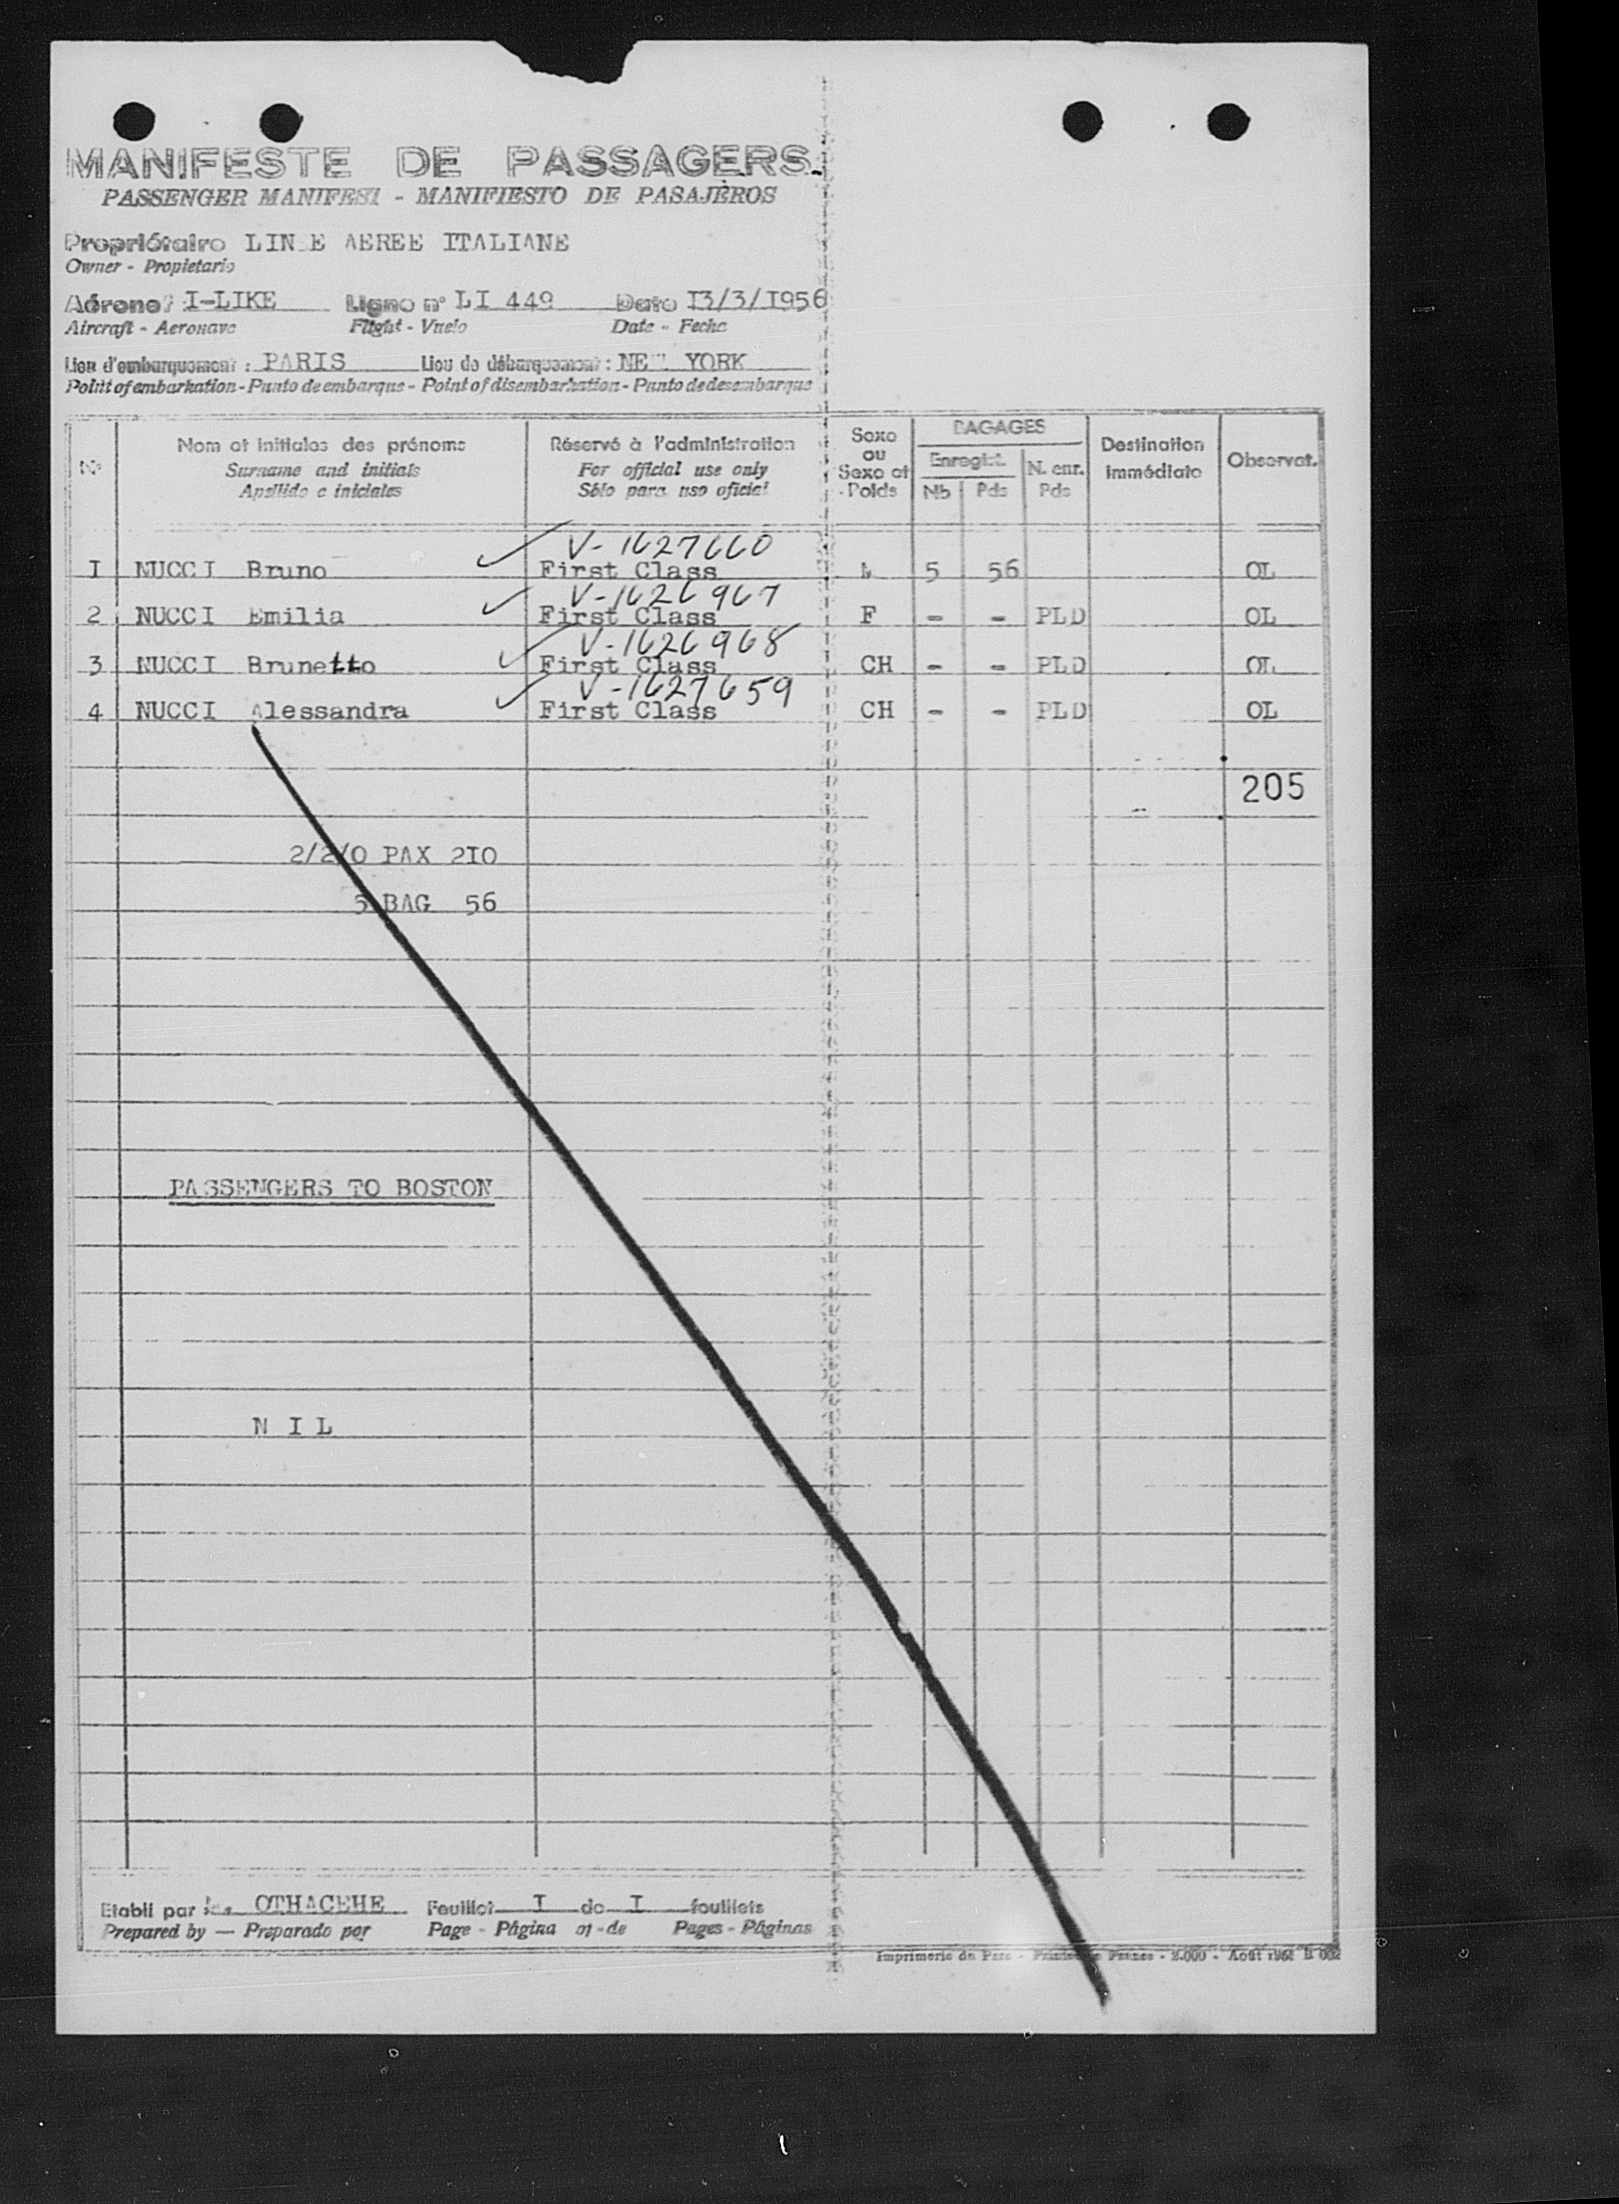 MANIFESTE DE PASSAGERS
PASSENGER MANIFEST - MANIFIESTO DE PASAJEROS
Propriétaire LIN E AEREE ITALIANE
Owner - Propietario
Aéronef I-LIKE Ligne n° LI 449 Date I3/3/I956
Aircraft - Aeronave Flight - Vuelo Date - Fecha
Lieu d'embarquement : PARIS Lieu de débarquement : NEW YORK
Point of embarkation - Punto de embarque - Point of disembarkation - Punto de desembarque
N° Nom et initiales des prénoms Réservé à l'administration Sexe ou Sexe et Poids BAGAGES Destination immédiate Observat.
Surname and initials For official use only Enregist. N. enr.
Apellido e iniciales Sólo para uso oficial Nb Pds Pds
V-1627660
I NUCCI Bruno First Class M 5 56 OL
V-1626967
2 NUCCI Emilia First Class F - - PLD OL
V-1626968
3 NUCCI Brunetto First Class CH - - PLD OL
V-1627659
4 NUCCI Alessandra First Class CH - - PLD OL
205
2/2/0 PAX 2I0
5 BAG 56
PASSENGERS TO BOSTON
N I L
Etabli par OTHACEHE Feuillet I de I feuillets
Prepared by — Preparado por Page - Página of - de Pages - Páginas
Imprimerie de - 5.000 - Août